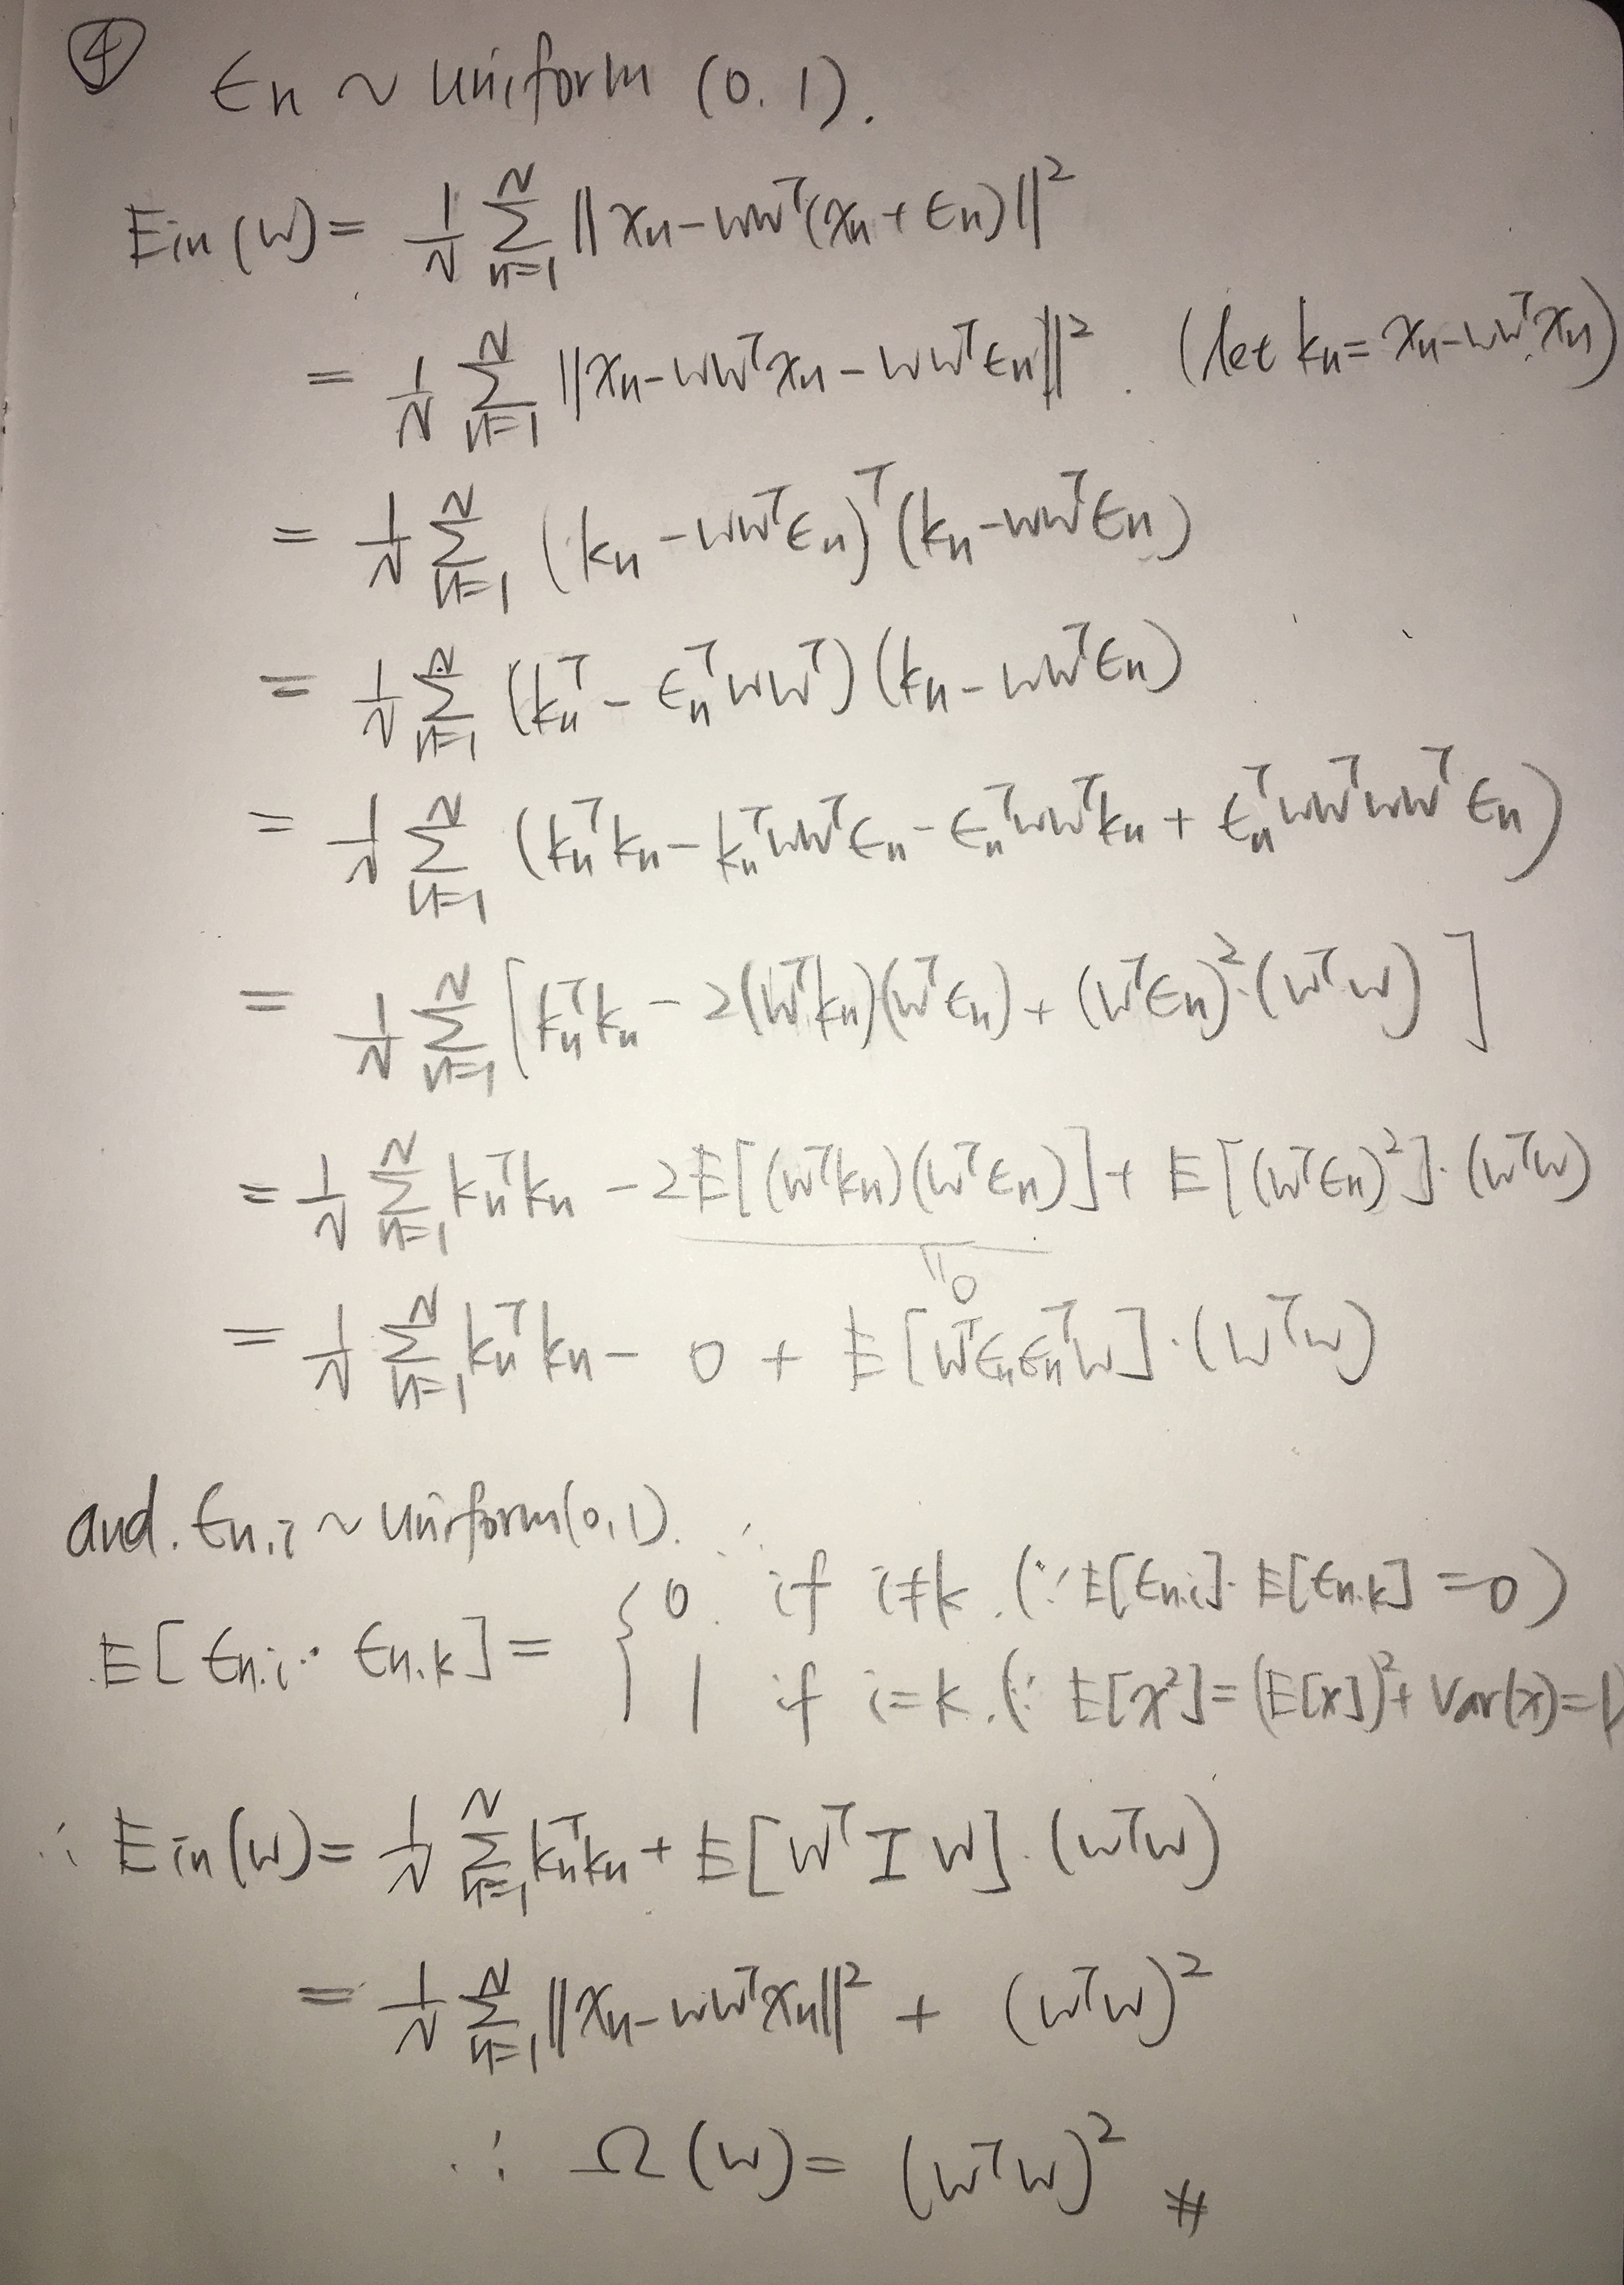 ④ ϵn ~ uniform (0.1).
Ein(w) = 1/N Σ_{n=1}^{N} ||xn - ww^T(xn + ϵn)||^2
= 1/N Σ_{n=1}^{N} ||xn - ww^T xn - ww^T ϵn||^2. (let kn = xn - ww^T xn)
= 1/N Σ_{n=1}^{N} (kn - ww^T ϵn)^T (kn - ww^T ϵn)
= 1/N Σ_{n=1}^{N} (kn^T - ϵn^T ww^T)(kn - ww^T ϵn)
= 1/N Σ_{n=1}^{N} (kn^T kn - kn^T ww^T ϵn - ϵn^T ww^T kn + ϵn^T ww^T ww^T ϵn)
= 1/N Σ_{n=1}^{N} [kn^T kn - 2(w^T kn)(w^T ϵn) + (w^T ϵn)^2·(w^T w)]
= 1/N Σ_{n=1}^{N} kn^T kn - 2E[(w^T kn)(w^T ϵn)] + E[(w^T ϵn)^2]·(w^T w)
"0
= 1/N Σ_{n=1}^{N} kn^T kn - 0 + E[w^T ϵn ϵn^T w]·(w^T w)
and. ϵn,i ~ uniform(0,1). ∴
E[ϵn,i · ϵn,k] = { 0. if i≠k. (∵ E[ϵn,i]·E[ϵn,k] = 0)
1 if i=k. (∵ E[x^2] = (E[x])^2 + Var(x) = 1)
∴ Ein(w) = 1/N Σ_{n=1}^{N} kn^T kn + E[w^T I w]·(w^T w)
= 1/N Σ_{n=1}^{N} ||xn - ww^T xn||^2 + (w^T w)^2
∴ Ω(w) = (w^T w)^2 #